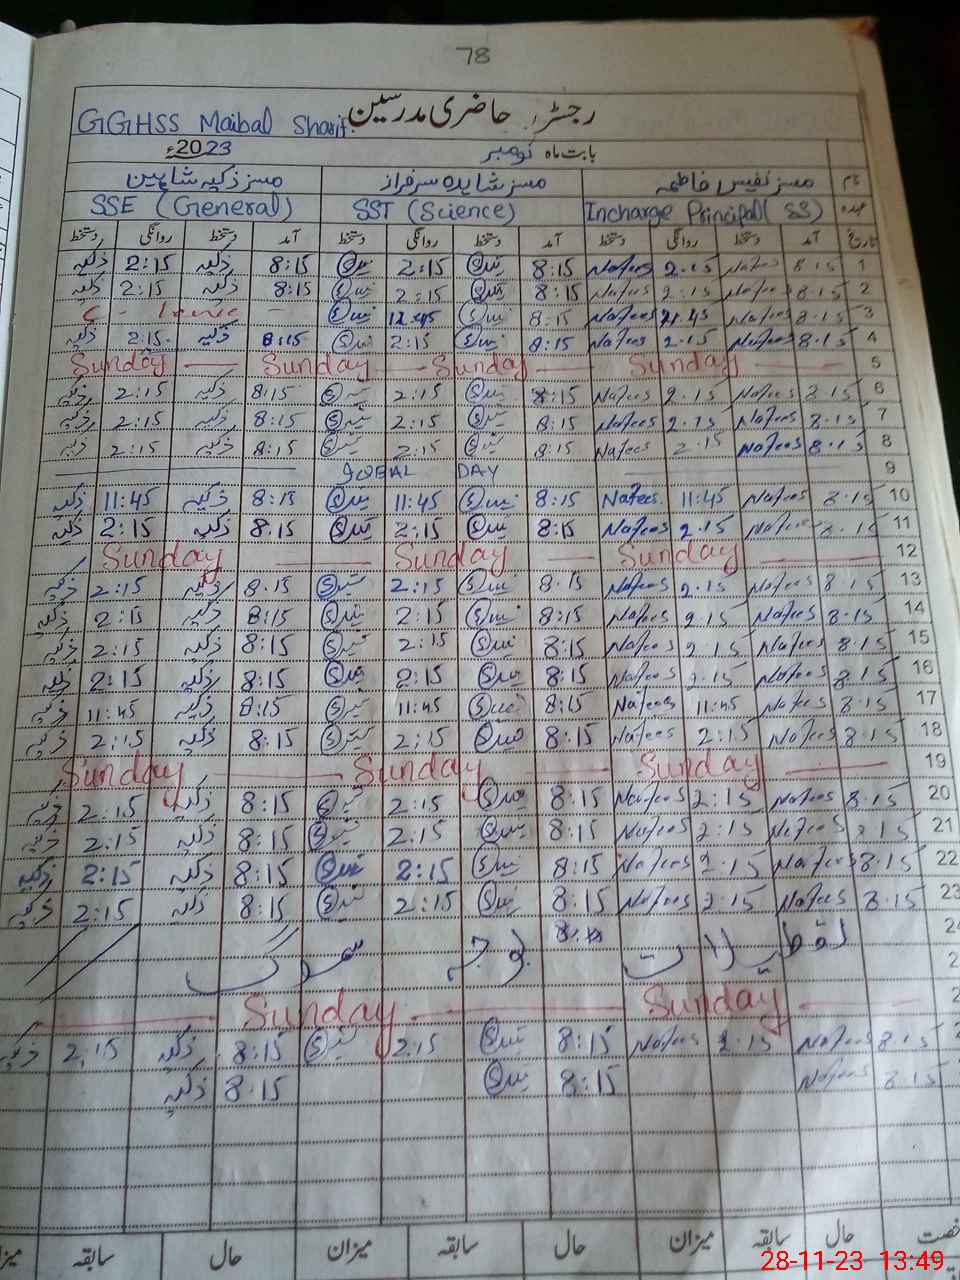 78
رجسٹر حاضری مدرسین GGHSS Maibal Sharif
بابت ماہ نومبر 2023ء
نام مسز نفیس فاطمہ مسز شاہدہ سرفراز مسز ذکیہ شاہین
عہدہ Incharge Principal (SS) SST (Science) SSE (General)
تاریخ آمد دستخط روانگی دستخط آمد دستخط روانگی دستخط آمد دستخط روانگی دستخط
1 8:15 Nafees 2:15 Nafees 8:15 2:15 8:15 ذکیہ 2:15 ذکیہ
2 8:15 Nafees 2:15 Nafees 8:15 2:15 8:15 ذکیہ 2:15 ذکیہ
3 8:15 Nafees Nafees 8:15 12:45 C - leave
4 8:15 Nafees 2:15 Nafees 8:15 2:15 8:15 ذکیہ 2:15 ذکیہ
5 Sunday Sunday Sunday Sunday
6 8:15 Nafees 2:15 Nafees 8:15 2:15 8:15 ذکیہ 2:15 ذکیہ
7 8:15 Nafees 2:15 Nafees 8:15 2:15 8:15 ذکیہ 2:15 ذکیہ
8 8:15 Nafees 2:15 Nafees 8:15 2:15 8:15 ذکیہ 2:15 ذکیہ
9 IQBAL DAY
10 8:15 Nafees 11:45 Nafees 8:15 11:45 8:15 ذکیہ 11:45 ذکیہ
11 8:15 Nafees 2:15 Nafees 8:15 2:15 8:15 ذکیہ 2:15 ذکیہ
12 Sunday Sunday Sunday
13 8:15 Nafees 2:15 Nafees 8:15 2:15 8:15 ذکیہ 2:15 ذکیہ
14 8:15 Nafees 2:15 Nafees 8:15 2:15 8:15 ذکیہ 2:15 ذکیہ
15 8:15 Nafees 2:15 Nafees 8:15 2:15 8:15 ذکیہ 2:15 ذکیہ
16 8:15 Nafees 2:15 Nafees 8:15 2:15 8:15 ذکیہ 2:15 ذکیہ
17 8:15 Nafees 11:45 Nafees 8:15 11:45 8:15 ذکیہ 11:45 ذکیہ
18 8:15 Nafees 2:15 Nafees 8:15 2:15 8:15 ذکیہ 2:15 ذکیہ
19 Sunday Sunday Sunday
20 8:15 Nafees 2:15 Nafees 8:15 2:15 8:15 ذکیہ 2:15 ذکیہ
21 8:15 Nafees 2:15 Nafees 8:15 2:15 8:15 ذکیہ 2:15 ذکیہ
22 8:15 Nafees 2:15 Nafees 8:15 2:15 8:15 ذکیہ 2:15 ذکیہ
23 8:15 Nafees 2:15 Nafees 8:15 2:15 8:15 ذکیہ 2:15 ذکیہ
تعطیلات بوجہ سموگ
Sunday Sunday
8:15 Nafees 2:15 Nafees 8:15 2:15 8:15 ذکیہ 2:15 ذکیہ
8:15 Nafees 8:15 8:15 ذکیہ
حال سابقہ میزان حال سابقہ میزان حال سابقہ
28-11-23 13:49